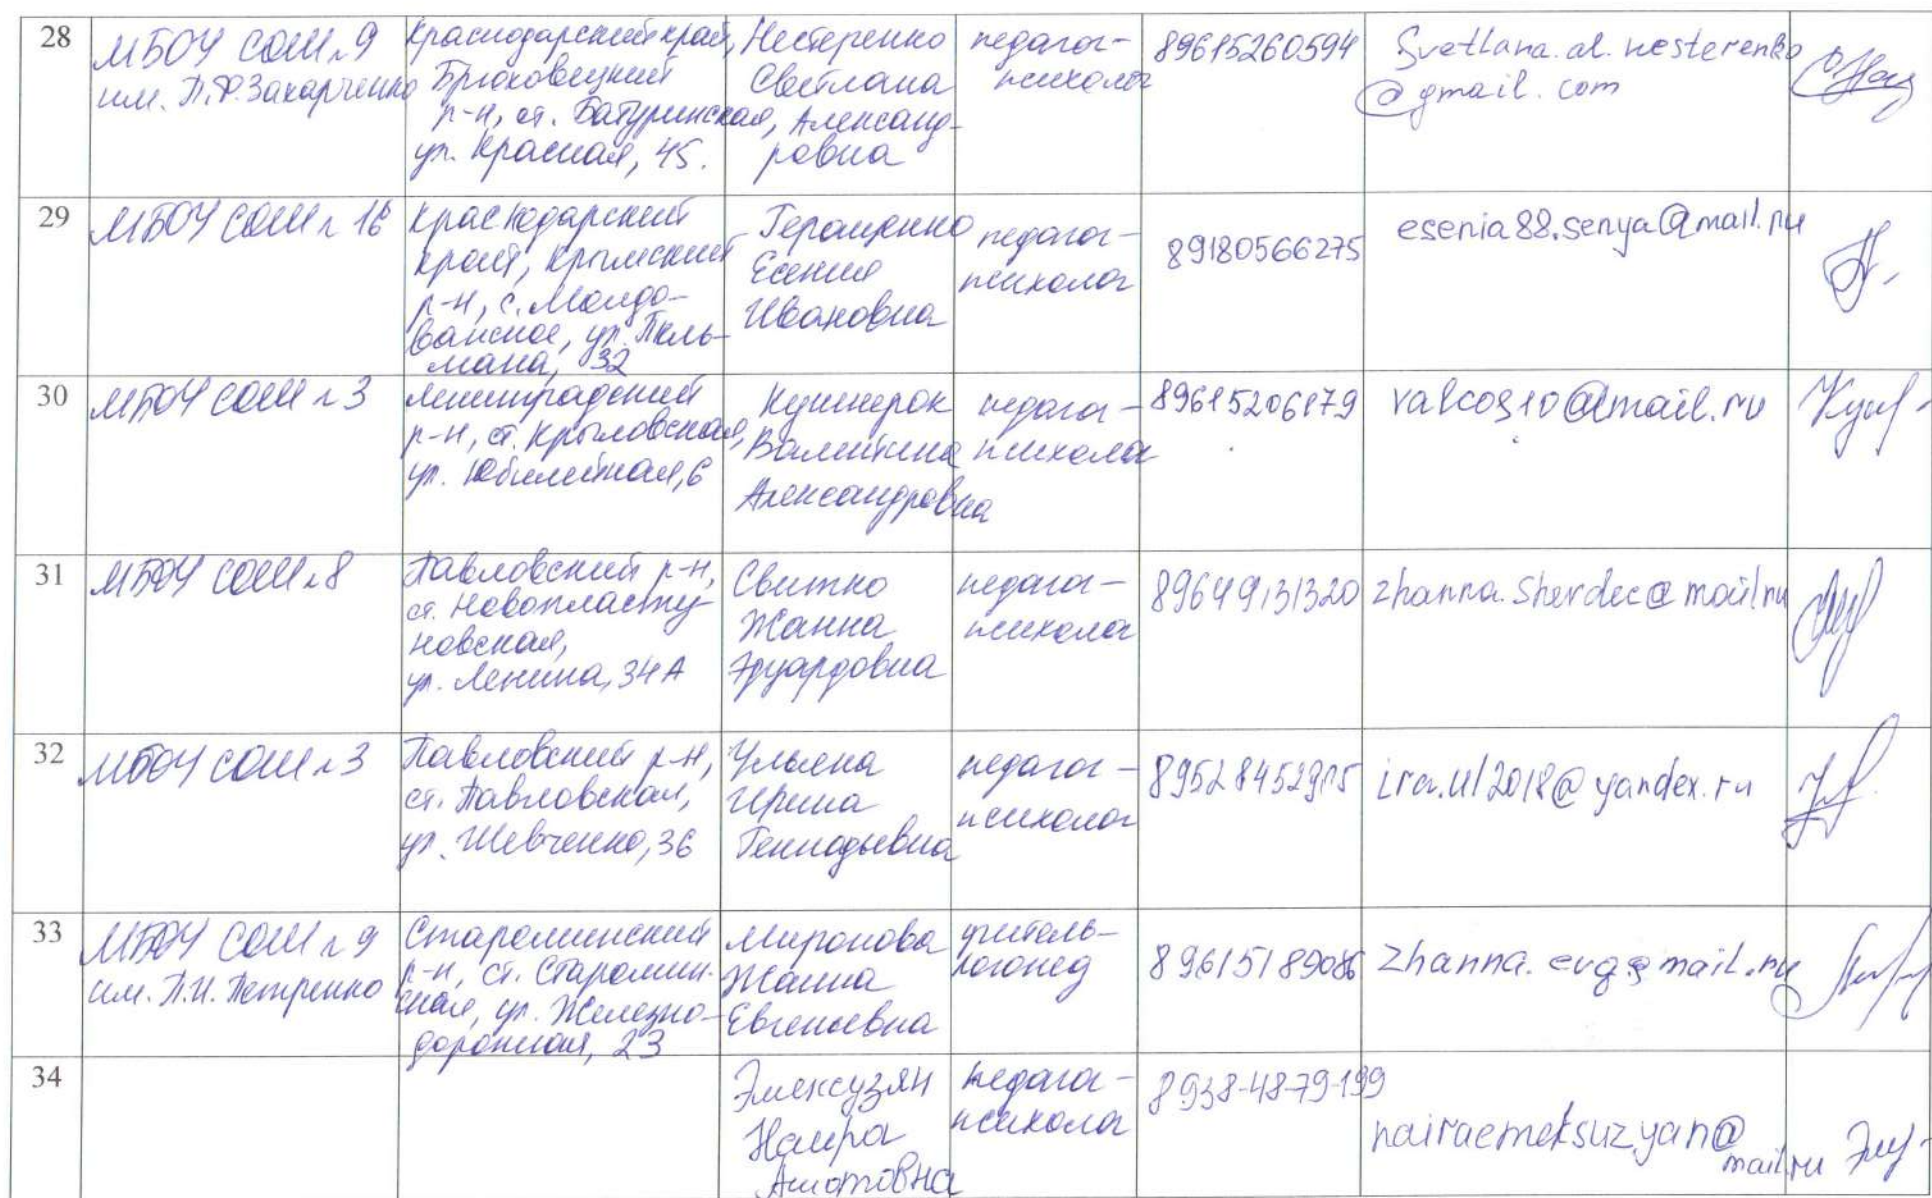 28
МБОУ СОШ №9
им. П.Ф. Захарченко
Краснодарский край,
Брюховецкий
р-н, ст. Батуринская,
ул. Красная, 45.
Нестеренко
Светлана
Александ-
ровна
педагог-
психолог
89615260594
Svetlana.al.nesterenko
@gmail.com
29
МБОУ СОШ № 16
Краснодарский
край, Крымский
р-н, с. Молдо-
ванское, ул. Тель-
мана, 32
Геращенко
Есения
Ивановна
педагог-
психолог
89180566275
esenia88.senya@mail.ru
30
МБОУ СОШ №3
Ленинградский
р-н, ст. Крыловская,
ул. Юбилейная, 6
Кушнерок
Валентина
Александровна
педагог-
психолог
89615206179
valcos10@mail.ru
31
МБОУ СОШ №8
Павловский р-н,
ст. Новопласту-
новская,
ул. Ленина, 34А
Свитко
Жанна
Эдуардовна
педагог-
психолог
89649131320
zhanna.Sherdec@mail.ru
32
МБОУ СОШ №3
Павловский р-н,
ст. Павловская,
ул. Шевченко, 36
Ульяна
Ирина
Геннадьевна
педагог-
психолог
89528452915
ira.ul2018@yandex.ru
33
МБОУ СОШ №9
им. П.И. Петренко
Староминский
р-н, ст. Старомин-
ская, ул. Железно-
дорожная, 23
Миронова
Жанна
Евгеньевна
учитель-
логопед
89615189086
zhanna.evg@mail.ru
34
Эмексузян
Наира
Ашотовна
педагог-
психолог
8938-48-79-199
nairaemeksuzyan@
mail.ru